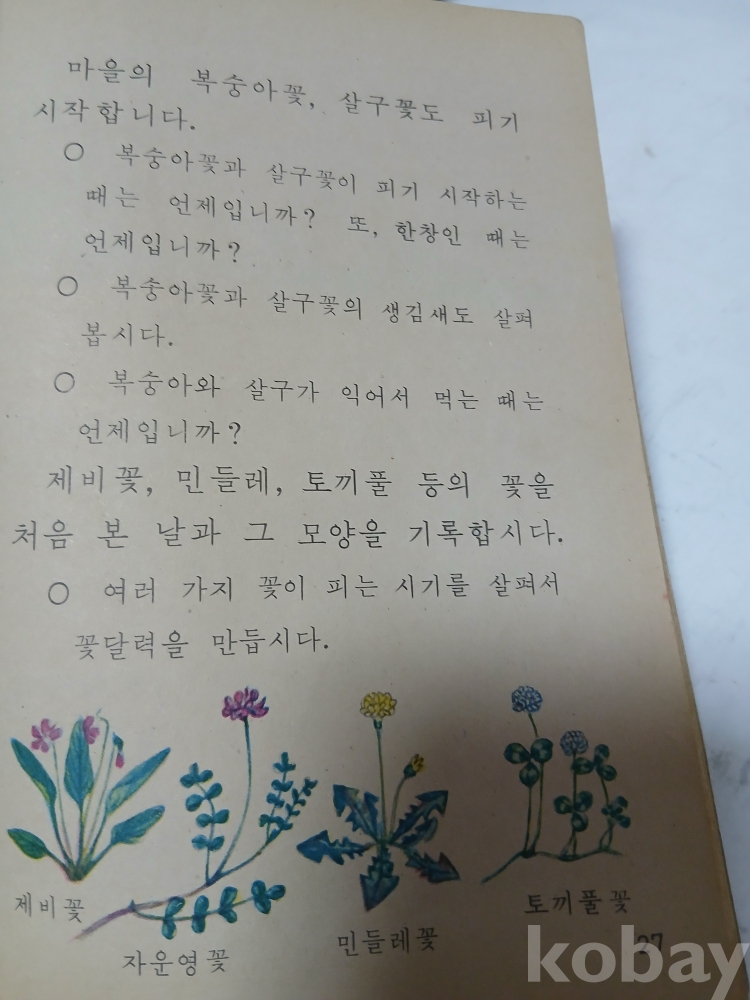 마을의 복숭아꽃, 살구꽃도 피기
시작합니다.
○ 복숭아꽃과 살구꽃이 피기 시작하는
때는 언제입니까? 또, 한창인 때는
언제입니까?
○ 복숭아꽃과 살구꽃의 생김새도 살펴
봅시다.
○ 복숭아와 살구가 익어서 먹는 때는
언제입니까?
제비꽃, 민들레, 토끼풀 등의 꽃을
처음 본 날과 그 모양을 기록합시다.
○ 여러 가지 꽃이 피는 시기를 살펴서
꽃달력을 만듭시다.
제비꽃
자운영꽃
민들레꽃
토끼풀꽃
27
kobay